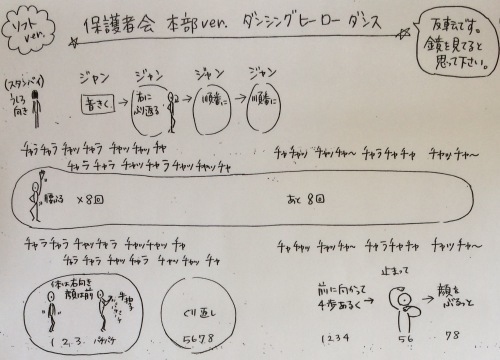 ソフト
ver.
保護者会 本部ver. ダンシングヒーロー ダンス
反転です。
鏡を見てると
思って下さい。
(スタンバイ)
うしろ
向き
ジャン
ジャン
ジャン
ジャン
音きく
右に
ふり返る
順番に
順番に
チャラ チャラ チャッ チャラ チャッチャッ チャ
チャラ チャラ チャッ チャラ チャッチャッ チャ
チャチャッ チャッチャ〜 チャラ チャチャ チャッチャ〜
腰ふる ×8回
あと 8回
チャラ チャラ チャッ チャラ チャッチャッ チャ
チャラ チャラ チャッ チャラ チャッチャッ チャ
チャチャッ チャッチャ〜 チャラ チャチャ チャッチャ〜
体は右向き
顔は前
1. 2. 3. パチパチ
くり返し
5 6 7 8
前に向かって
4歩あるく
1 2 3 4
止まって
5 6
顔を
ぷるっと
7 8